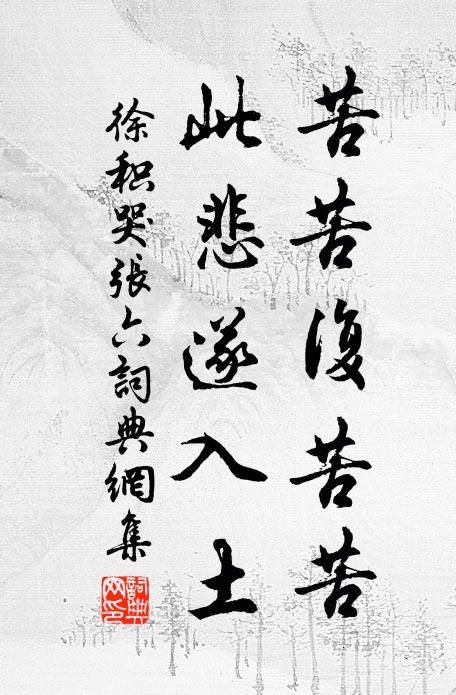 苦苦復苦苦
此悲遂入土
徐积哭張六詞典網集
詞典網印